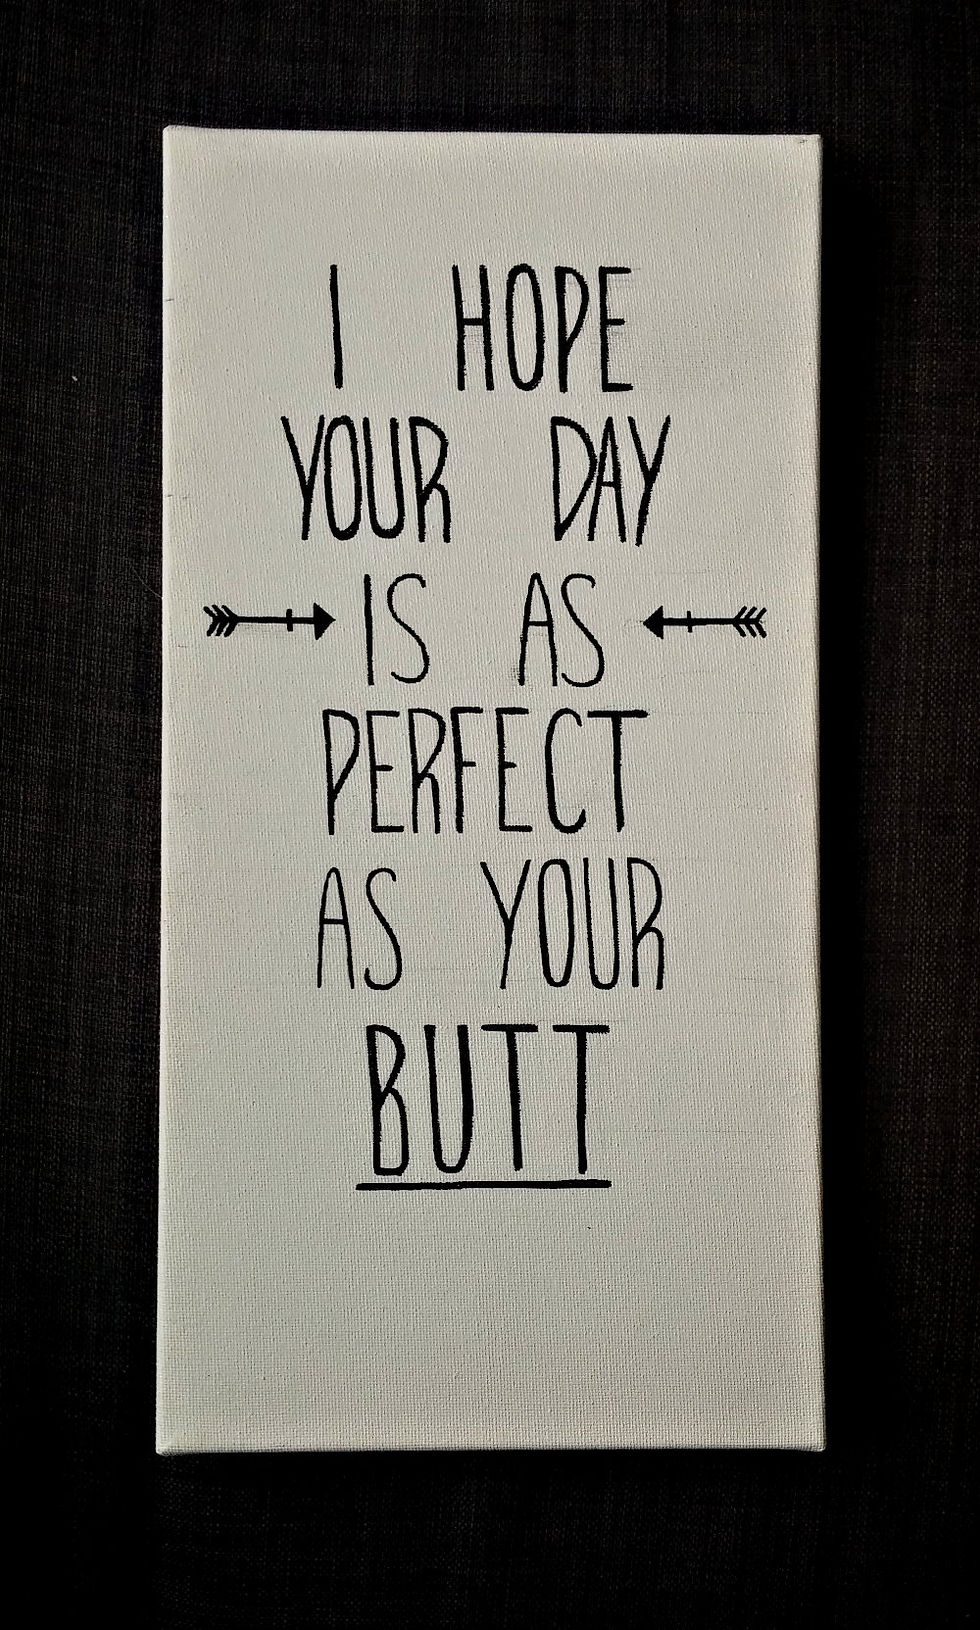 I HOPE
YOUR DAY
IS AS
PERFECT
AS YOUR
BUTT